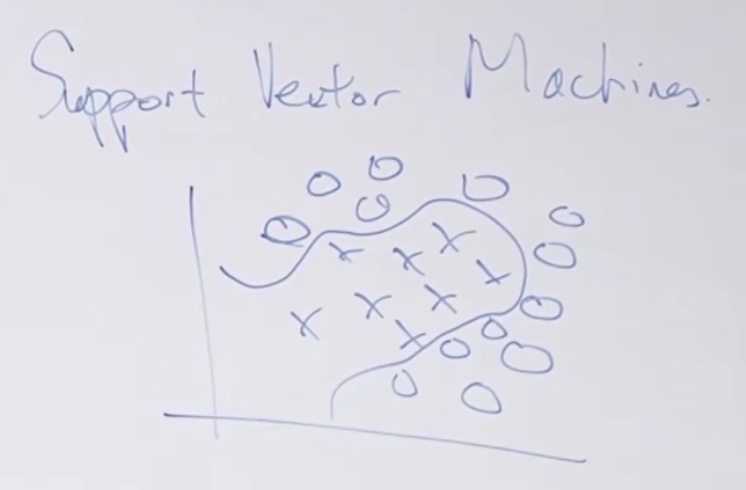 Support Vector Machines.